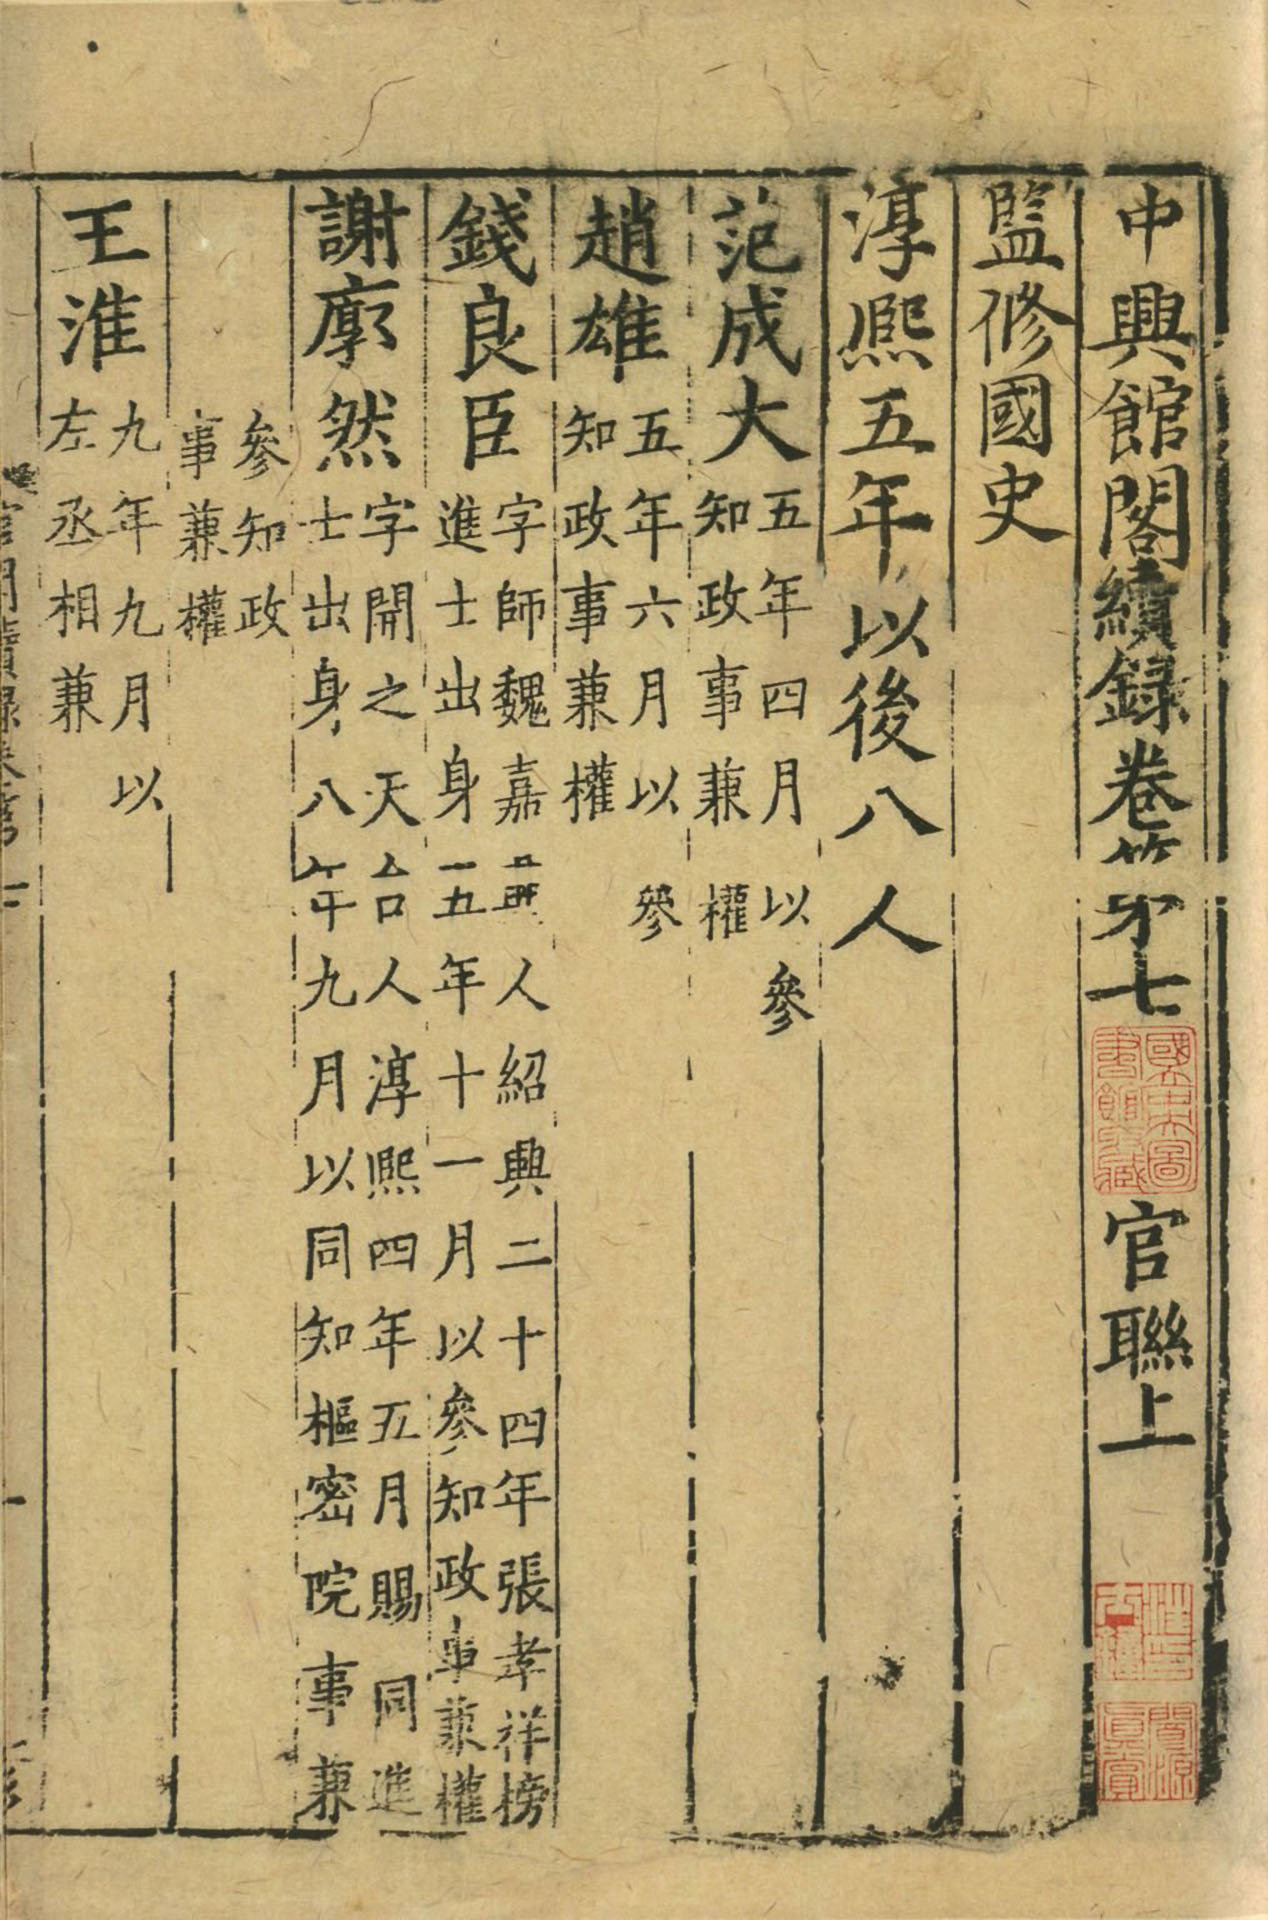 中興館閣續錄卷第七 官聯上
國立中央圖書館收藏
監修國史
淳熙五年以後八人
范成大 五年四月以參
知政事兼權
趙雄 五年六月以參
知政事兼權
錢良臣 字師魏嘉興人紹興二十四年張孝祥榜
進士出身五年十一月以參知政事兼權
謝廓然 字開之天台人淳熙四年五月賜同進
士出身八年九月以同知樞密院事兼
參知政
事兼權
王淮 九年九月以
左丞相兼